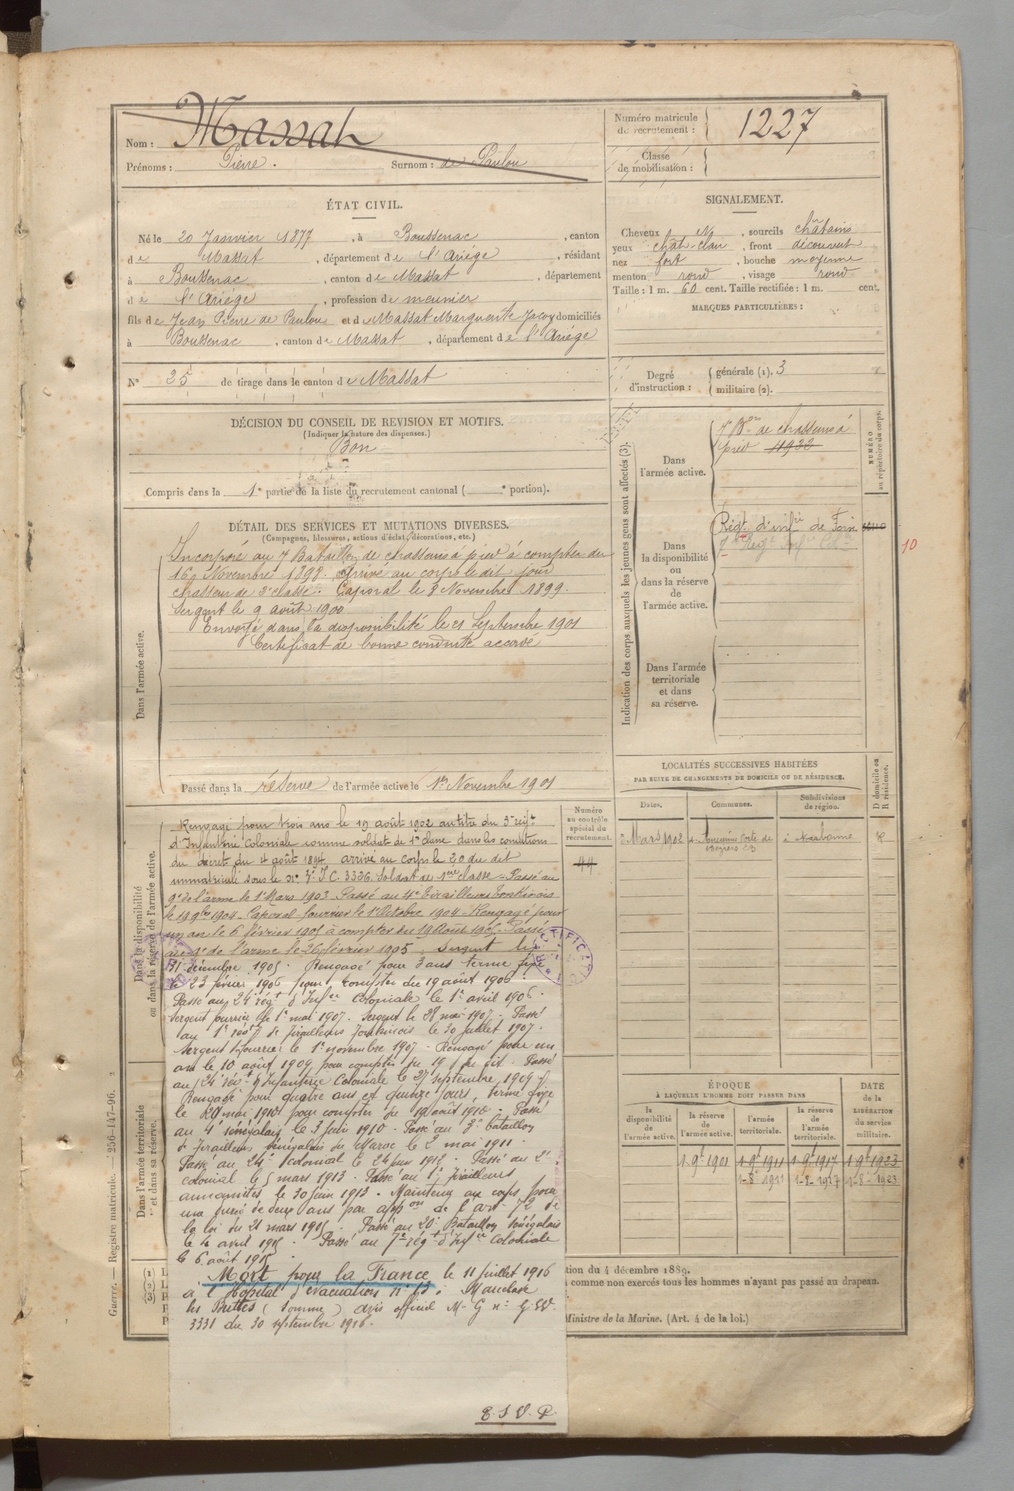 Nom : Massat
Prénoms : Pierre. Surnom : de Paulou
Numéro matricule du recrutement : 1227
Classe de mobilisation :
ÉTAT CIVIL.
Né le 20 Janvier 1877, à Boussenac, canton
de Massat, département de l'Ariège, résidant
à Boussenac, canton de Massat, département
de l'Ariège, profession de meunier
fils de Jean Pierre de Paulou et de Massat Marguerite Jacoy domiciliés
à Boussenac, canton de Massat, département de l'Ariège
N° 25 de tirage dans le canton de Massat
SIGNALEMENT.
Cheveux N, sourcils châtains
yeux chat clair, front découvert
nez fort, bouche moyenne
menton rond, visage rond
Taille : 1 m. 60 cent. Taille rectifiée : 1 m. cent.
MARQUES PARTICULIÈRES :
Degré d'instruction : générale (1). 3
militaire (2).
DÉCISION DU CONSEIL DE REVISION ET MOTIFS.
(Indiquer la nature des dispenses.)
Bon
Compris dans la 1e partie de la liste du recrutement cantonal ( e portion).
DÉTAIL DES SERVICES ET MUTATIONS DIVERSES.
(Campagnes, blessures, actions d'éclat, décorations, etc.)
Dans l'armée active.
Incorporé au 7 Bataillon de chasseurs à pied à compter du
16 Novembre 1898. Arrivé au corps le dit jour
chasseur de 2e classe. Caporal le 8 Novembre 1899.
Sergent le 9 août 1900
Envoyé dans la disponibilité le 21 Septembre 1901
Certificat de bonne conduite accordé
Passé dans la réserve de l'armée active le 1er Novembre 1901
Indication des corps auxquels les jeunes gens sont affectés (3).
NUMÉRO au répertoire du corps.
Dans l'armée active.
7e Bon de chasseurs à
pied 11932
Dans la disponibilité ou dans la réserve de l'armée active.
Régt d'infrie de Foix
10
Dans l'armée territoriale et dans sa réserve.
LOCALITÉS SUCCESSIVES HABITÉES
PAR SUITE DE CHANGEMENTS DE DOMICILE OU DE RÉSIDENCE.
Dates. Communes. Subdivisions de région. D domicile ou R résidence.
Mars 1902 Narbonne R
Dans la disponibilité ou dans la réserve de l'armée active.
Numéro au contrôle spécial du recrutement.
44
Rengagé pour trois ans le 19 août 1902 au titre du 3e régt
d'Infanterie Coloniale comme soldat de 1e classe dans les conditions
du décret du 4 août 1894 arrivé au corps le 20 du dit
immatriculé sous le n° 3e I.C. 3336. Soldat de 1ere classe - Passé au
9e de l'arme le 1er Mars 1903 - Passé au 4e Tirailleurs Tonkinois
le 19 9bre 1904 - Caporal fourrier le 1er Octobre 1904 - Rengagé pour
un an le 6 février 1905 à compter du 19 Août 1905 - Passé
au 9e de l'arme le 26 février 1905. Sergent le
31 décembre 1905. Rengagé pour 3 ans terme fixe
le 23 février 1906 pour compter du 19 août 1906.
Passé au 24e régt d'Infie Coloniale le 1er avril 1906.
Sergent fourrier le 1er mai 1907. Sergent le 21 mai 1907. Passé
au 1er régt de tirailleurs Tonkinois le 30 juillet 1907.
Sergent fourrier le 1er novembre 1907. Rengagé pour un
an le 10 août 1909 pour compter du 19 du dit. Passé
au 24e régt d'Infanterie Coloniale le 27 septembre 1909
Rengagé pour quatre ans et quinze jours, terme fixe
le 29 mai 1910 pour compter du 19 août 1910. Passé
au 4e sénégalais le 3 juin 1910. Passé au 3e bataillon
de tirailleurs sénégalais du Maroc le 2 mai 1911.
Passé au 24e colonial le 24 juin 1912. Passé au 2e
colonial le 5 mars 1913. Passé au 1er tirailleurs
annamites le 30 juin 1913. Maintenu au corps pour
une durée de deux ans par appon de l'art 72 de
la loi du 21 mars 1905. Passé au 20e Bataillon Sénégalais
le 4 avril 1915. Passé au 7e régt d'Infie Coloniale
le 6 août 1915
Mort pour la France le 11 juillet 1916
à l'Hôpital d'évacuation n° 13.
les Buttes (Somme) avis officiel M. G n°
3331 du 30 septembre 1916.
T. S. V. P.
Dans l'armée territoriale et dans sa réserve.
ÉPOQUE
À LAQUELLE L'HOMME DOIT PASSER DANS
DATE de la LIBÉRATION du service militaire.
la disponibilité de l'armée active. la réserve de l'armée active. l'armée territoriale. la réserve de l'armée territoriale.
1 9e 1901 1 9e 1911 1 9e 1917 1 9e 1923
1-8-1911 1-8-1917 1-8-1923
tion du 4 décembre 1889.
comme non exercés tous les hommes n'ayant pas passé au drapeau.
Ministre de la Marine. (Art. 4 de la loi.)
Guerre. — Registre matricule. — 256-147-96.